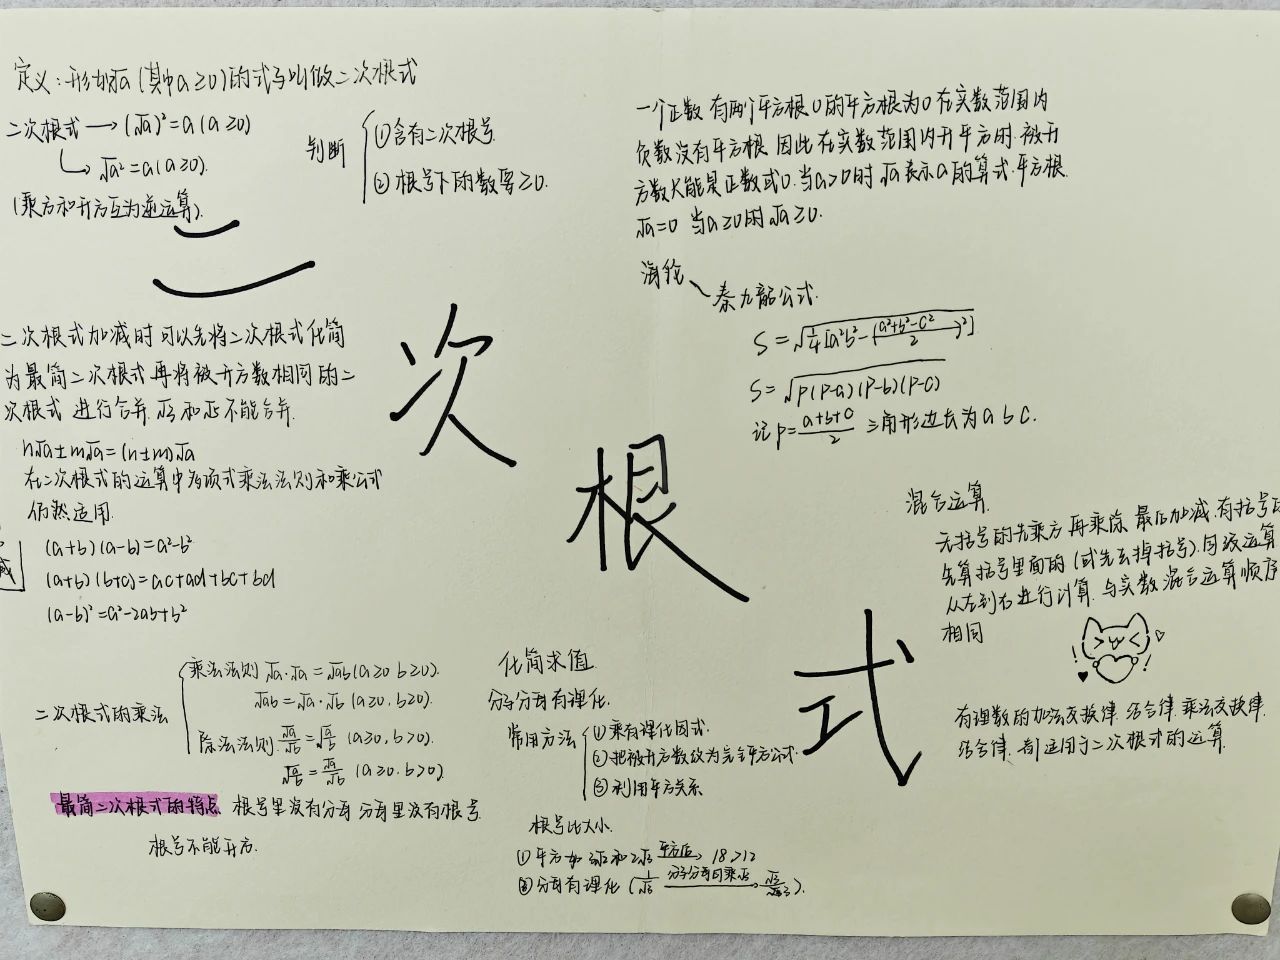 定义：形如√a（其中a≥0）的式子叫做二次根式
二次根式→(√a)²=a(a≥0)
√a²=a(a≥0).
(乘方和开方互为逆运算).
判断
①含有二次根号
②根号下的数要≥0.
一个正数有两个平方根0的平方根为0在实数范围内
负数没有平方根 因此在实数范围内开平方时.被开
方数只能是正数或0.当a>0时√a表示a的算式.平方根.
√a=0 当a≥0时√a≥0.
海伦
秦九韶公式.
S=√¼[a²b²-(a²+b²-c²/2)²]
S=√p(p-a)(p-b)(p-c)
记p=a+b+c/2 三角形边长为a b c.
二次根式
二次根式加减时可以先将二次根式化简
为最简二次根式再将被开方数相同的二
次根式进行合并.
和
不能合并.
n√a±m√a=(n±m)√a
在二次根式的运算中多项式乘法法则和乘公式
仍然适用.
减
(a+b)(a-b)=a²-b²
(a+b)(b+c)=ac+ad+bc+bd
(a-b)²=a²-2ab+b²
混合运算.
无括号的先乘方再乘除.最后加减.有括号的
先算括号里面的(或先去掉括号).同级运算
从左到右进行计算.与实数混合运算顺序
相同
有理数的加法交换律.结合律.乘法交换律.
结合律.都适用于二次根式的运算.
二次根式的乘法
乘法法则√a·√a=√ab(a≥0 b≥0).
√ab=√a·√b(a≥0.b≥0).
除法法则:√a/√b=√a/b (a≥0,b>0).
√a/b=√a/√b (a≥0.b>0)
最简二次根式的特点 根号里没有分母 分母里没有根号.
根号不能开方.
化简求值
分子分母有理化.
常用方法
①乘有理化因式.
②把被开方数改为完全平方公式.
③利用平方关系
根号比大小.
①平方如3√2和2√3 平方后→18>12
②分母有理化(1/√3 分子分母同乘√3→√3/√3·3).